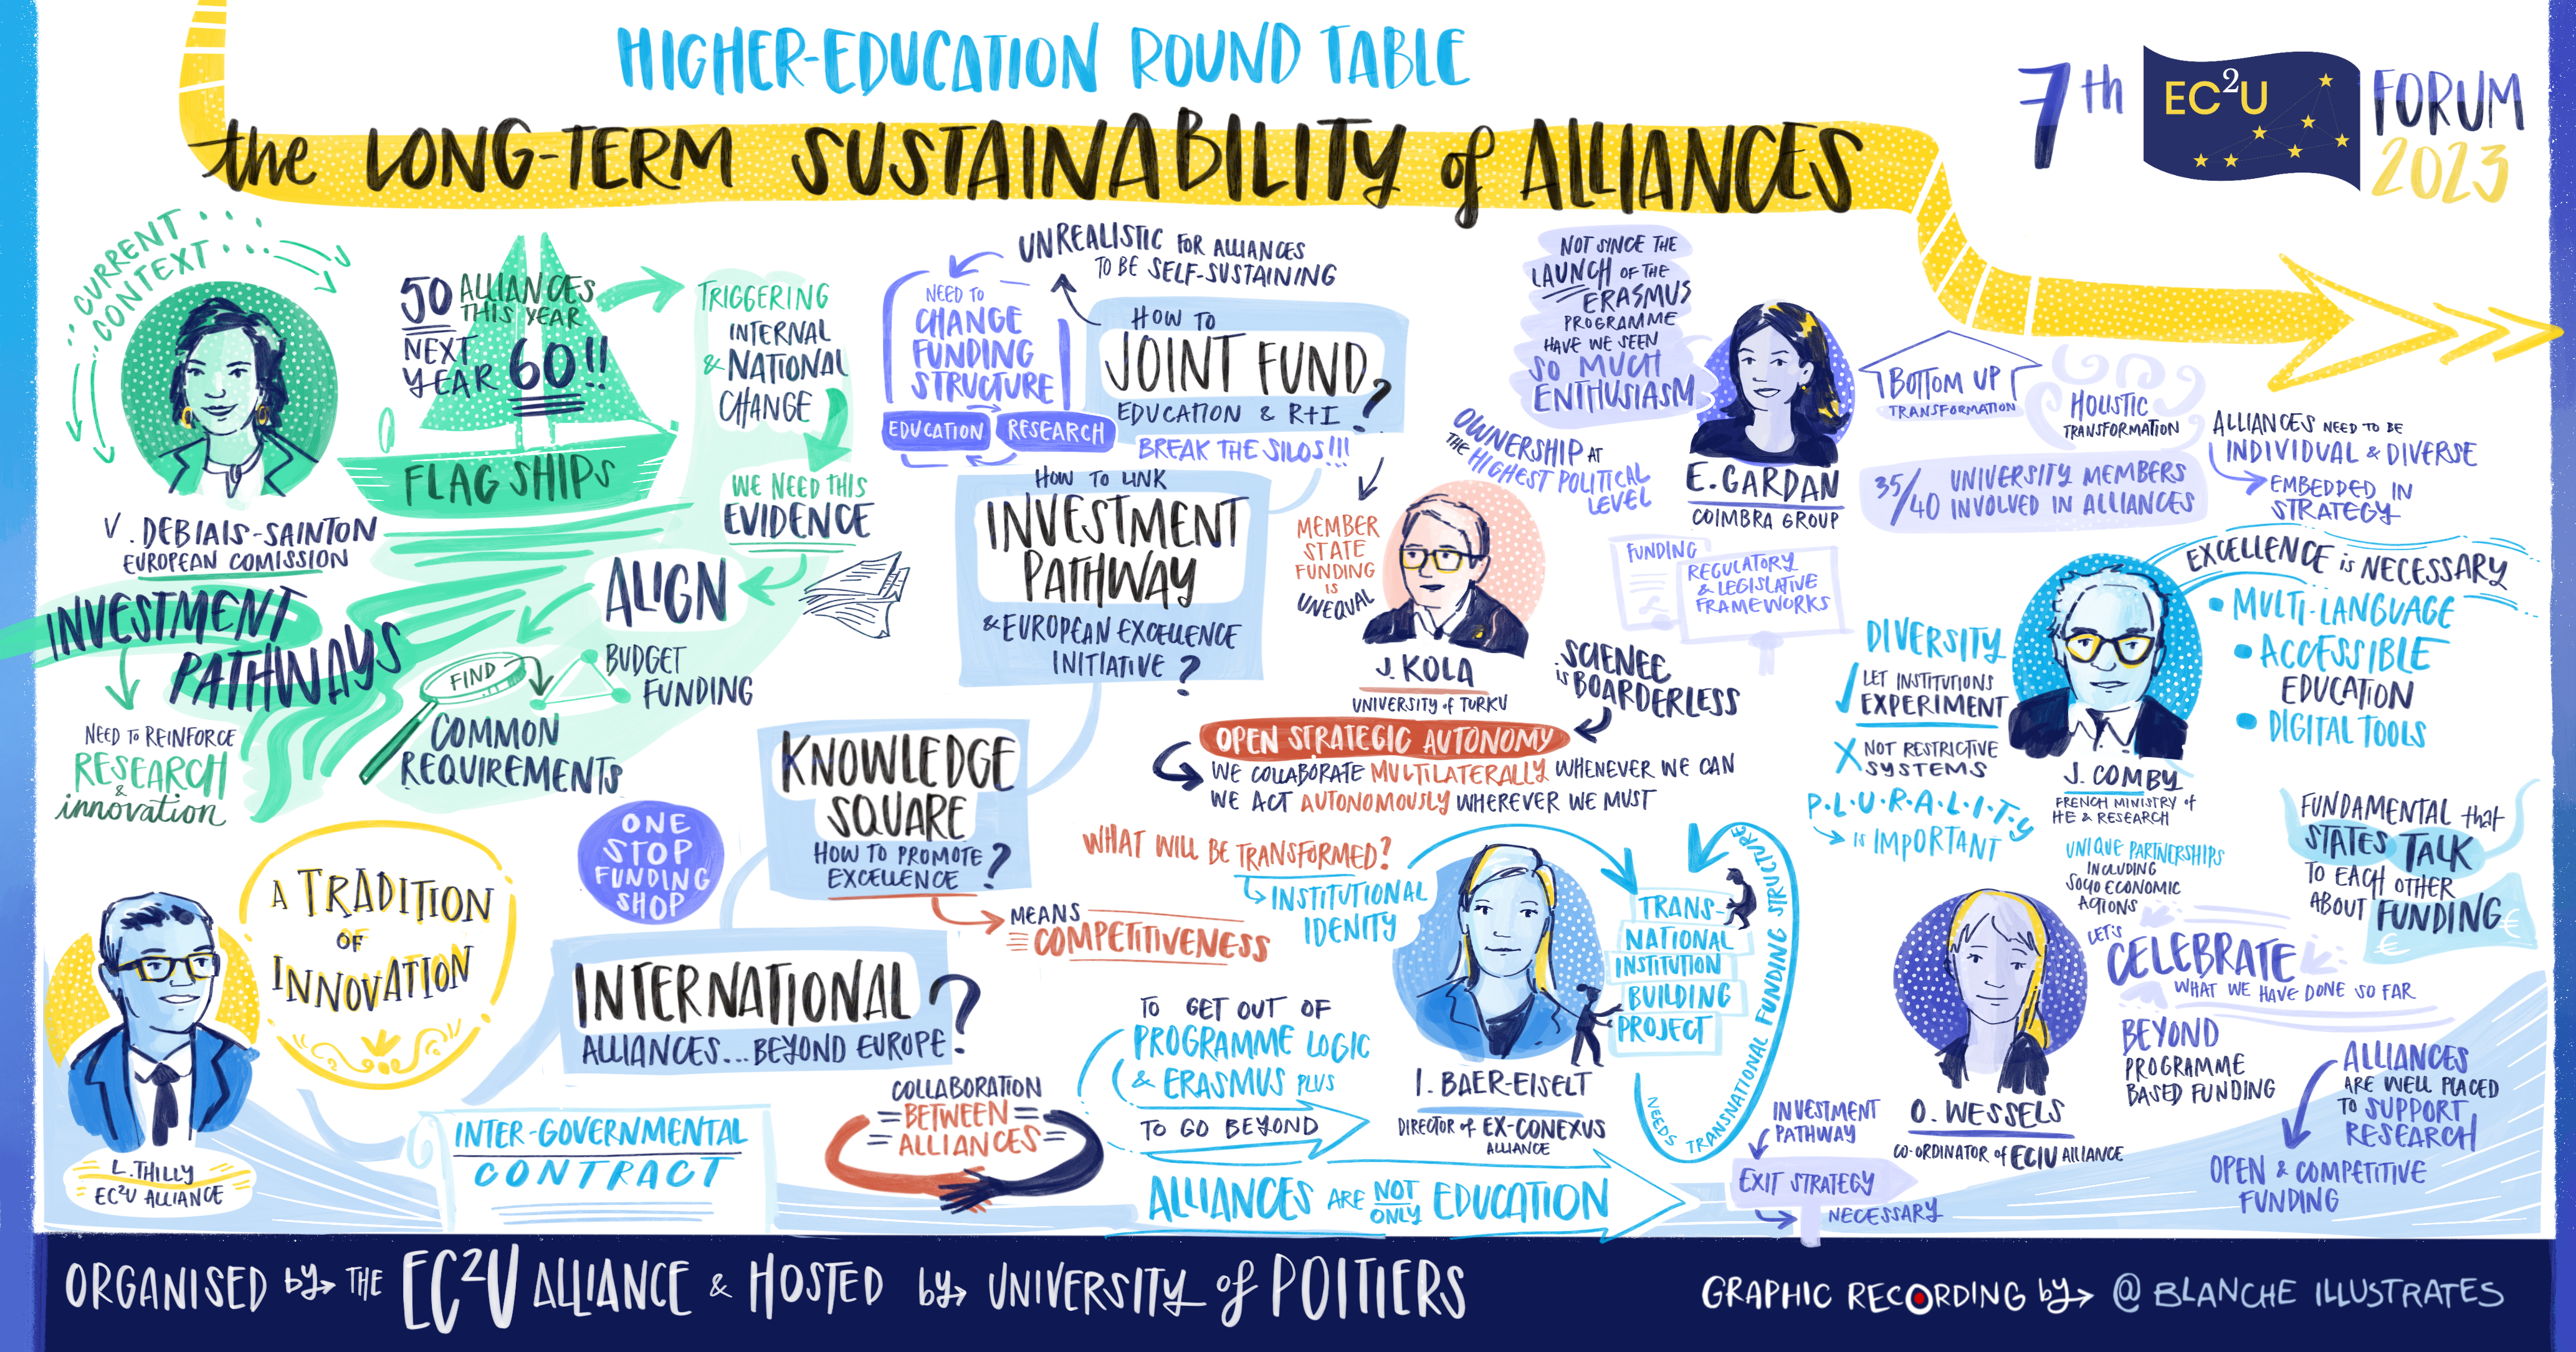 HIGHER-EDUCATION ROUND TABLE
the LONG-TERM SUSTAINABILITY of ALLIANCES
7th
EC²U
FORUM
2023
CURRENT
CONTEXT
V. DEBIAIS-SAINTON
EUROPEAN COMISSION
50 ALLIANCES
THIS YEAR
NEXT
YEAR 60!!
FLAG SHIPS
TRIGGERING
INTERNAL
& NATIONAL
CHANGE
WE NEED THIS
EVIDENCE
ALIGN
BUDGET
FUNDING
FIND
COMMON
REQUIREMENTS
INVESTMENT
PATHWAYS
NEED TO REINFORCE
RESEARCH
&
innovation
UNREALISTIC FOR ALLIANCES
TO BE SELF-SUSTAINING
NEED TO
CHANGE
FUNDING
STRUCTURE
EDUCATION
RESEARCH
HOW TO
JOINT FUND
EDUCATION & R+I ?
BREAK THE SILOS!!!
HOW TO LINK
INVESTMENT
PATHWAY
& EUROPEAN EXCELLENCE
INITIATIVE ?
KNOWLEDGE
SQUARE
HOW TO PROMOTE
EXCELLENCE ?
MEANS
COMPETITIVENESS
ONE
STOP
FUNDING
SHOP
INTERNATIONAL
ALLIANCES... BEYOND EUROPE ?
L. THILLY
EC²U ALLIANCE
A TRADITION
OF
INNOVATION
INTER-GOVERNMENTAL
CONTRACT
COLLABORATION
BETWEEN
ALLIANCES
MEMBER
STATE
FUNDING
IS
UNEQUAL
J. KOLA
UNIVERSITY of TURKU
SCIENCE
is BOARDERLESS
OPEN STRATEGIC AUTONOMY
WE COLLABORATE MULTILATERALLY WHENEVER WE CAN
WE ACT AUTONOMOUSLY WHEREVER WE MUST
NOT SINCE THE
LAUNCH OF THE
ERASMUS
PROGRAMME
HAVE WE SEEN
SO MUCH
ENTHUSIASM
OWNERSHIP AT
THE HIGHEST POLITICAL
LEVEL
E. GARDAN
COIMBRA GROUP
FUNDING
REGULATORY
& LEGISLATIVE
FRAMEWORKS
BOTTOM UP
TRANSFORMATION
HOLISTIC
TRANSFORMATION
35/40 UNIVERSITY MEMBERS
INVOLVED IN ALLIANCES
ALLIANCES NEED TO BE
INDIVIDUAL & DIVERSE
EMBEDDED IN
STRATEGY
EXCELLENCE is NECESSARY
• MULTI-LANGUAGE
• ACCESSIBLE
EDUCATION
• DIGITAL TOOLS
DIVERSITY
LET INSTITUTIONS
EXPERIMENT
NOT RESTRICTIVE
SYSTEMS
P·L·U·R·A·L·I·T·Y
is IMPORTANT
J. COMBY
FRENCH MINISTRY of
HE & RESEARCH
UNIQUE PARTNERSHIPS
INCLUDING
SOCIO ECONOMIC
ACTIONS
FUNDAMENTAL that
STATES TALK
TO EACH OTHER
ABOUT FUNDING
€
€
WHAT WILL BE TRANSFORMED?
INSTITUTIONAL
IDENITY
I. BAER-EISELT
DIRECTOR of EX-CONEXUS
ALLIANCE
TRANS-
NATIONAL
INSTITUTION
BUILDING
PROJECT
NEEDS TRANSNATIONAL FUNDING STRUCTURE
TO GET OUT OF
PROGRAMME LOGIC
& ERASMUS PLUS
TO GO BEYOND
ALLIANCES ARE NOT ONLY EDUCATION
O. WESSELS
CO-ORDINATOR of ECIU ALLIANCE
LET'S
CELEBRATE
WHAT WE HAVE DONE SO FAR
BEYOND
PROGRAMME
BASED FUNDING
ALLIANCES
ARE WELL PLACED
TO SUPPORT
RESEARCH
OPEN & COMPETITIVE
FUNDING
INVESTMENT
PATHWAY
EXIT STRATEGY
NECESSARY
ORGANISED by THE EC²U ALLIANCE & HOSTED by UNIVERSITY of POITIERS
GRAPHIC RECORDING by @ BLANCHE ILLUSTRATES